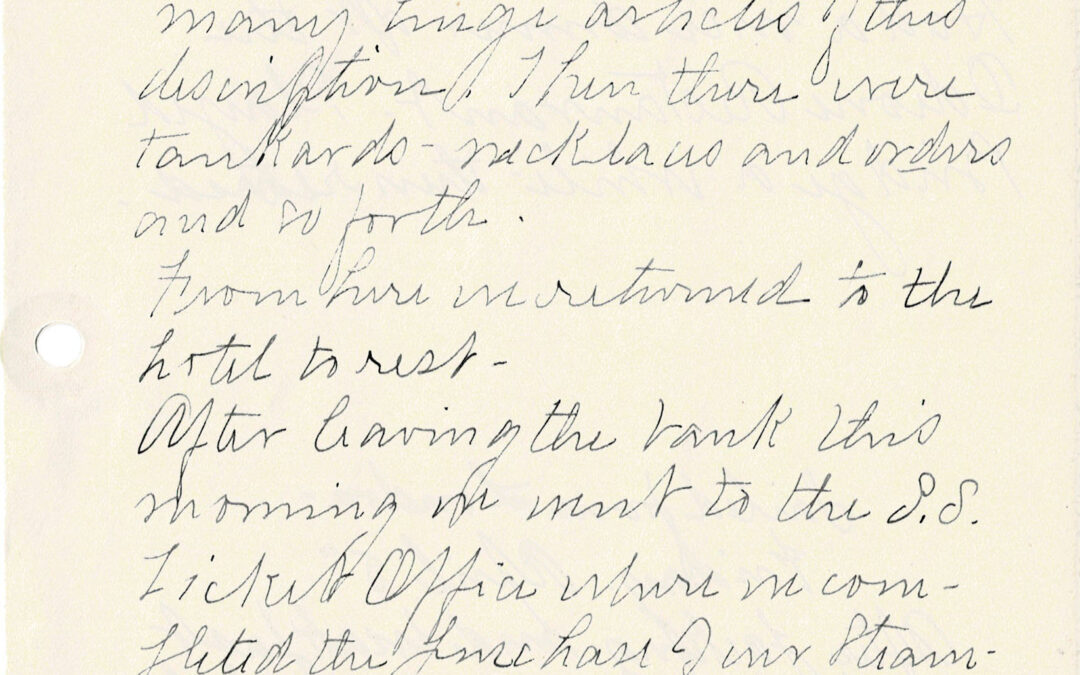 many huge articles of this
description. Then there were
tankards - necklaces and orders
and so forth.
From here we returned to the
hotel to rest -
After leaving the bank this
morning we went to the S.S.
Ticket Office where we com-
pleted the purchase of our Steam-